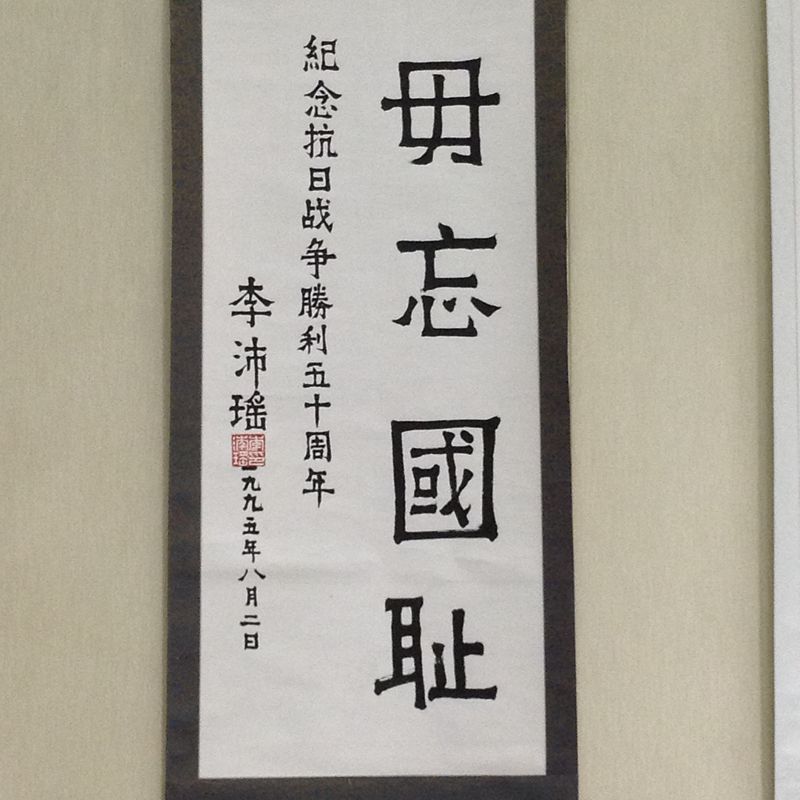 毋忘國耻
紀念抗日战争勝利五十周年
李沛瑶
一九九五年八月二日